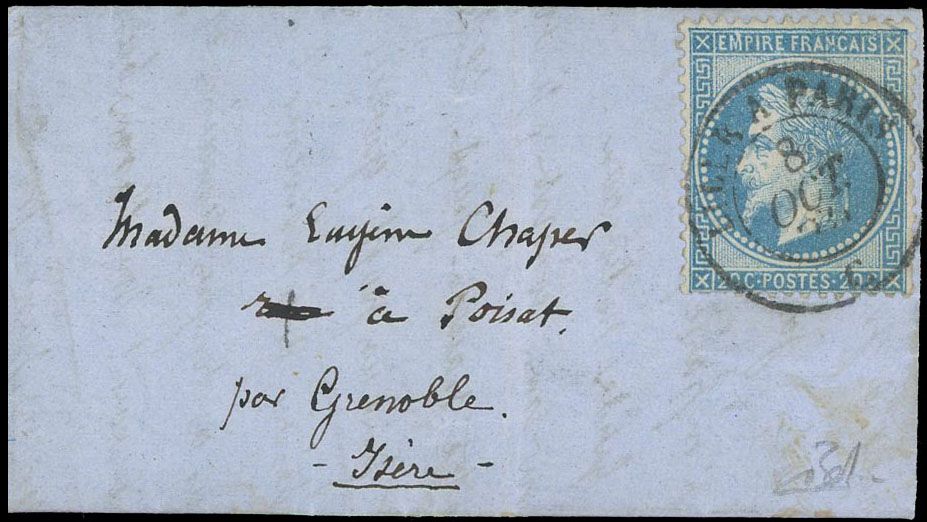 EMPIRE FRANÇAIS
20 C·POSTES·20
A PARIS
8
OCT.
Madame Eugène Chaper
à Poisat.
par Grenoble.
- Isère -